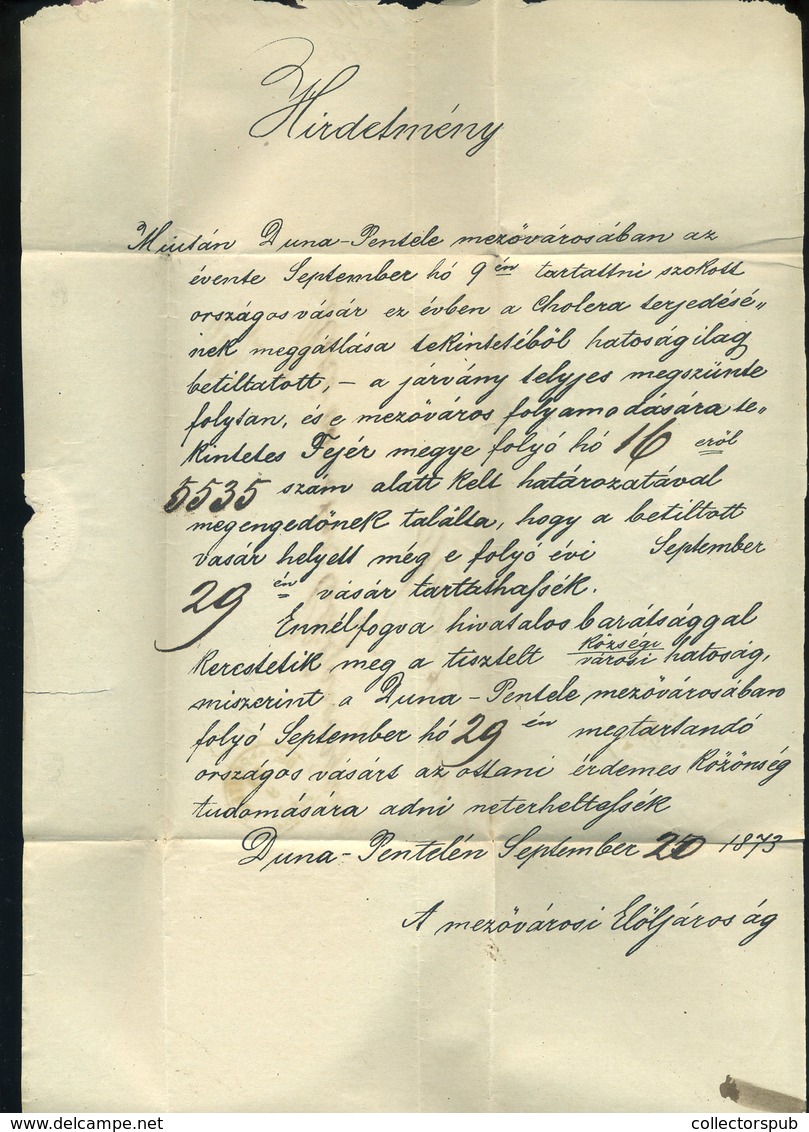 Hirdetmény
Miután Duna-Pentele mezővárosában az
évente September hó 9 én tartattni szokott
országos vásár ez évben a Cholera terjedésé„
nek meggátlása tekintetéből hatoságilag
betiltatott, – a járvány telyjes megszünte
folytan, és e mezőváros folyamodására te„
kintetes Fejér megye folyó hó 16 eről
5535 szám alatt kelt határozatával
megengedőnek találta, hogy a betiltott
vasár helyett még e folyó évi September
29 én vásár tartathassék.
Ennélfogva hivatalos barátsággal
kerestetik meg a tisztelt községi városi hatoság,
miszerint a Duna-Pentele mezővárosában
folyó September hó 29 én megtartandó
országos vásárt az ottani érdemes közönség
tudomására adni neterheltessék
Duna-Pentelén September 20 1873
A mezővárosi Előljároság
collectorspub